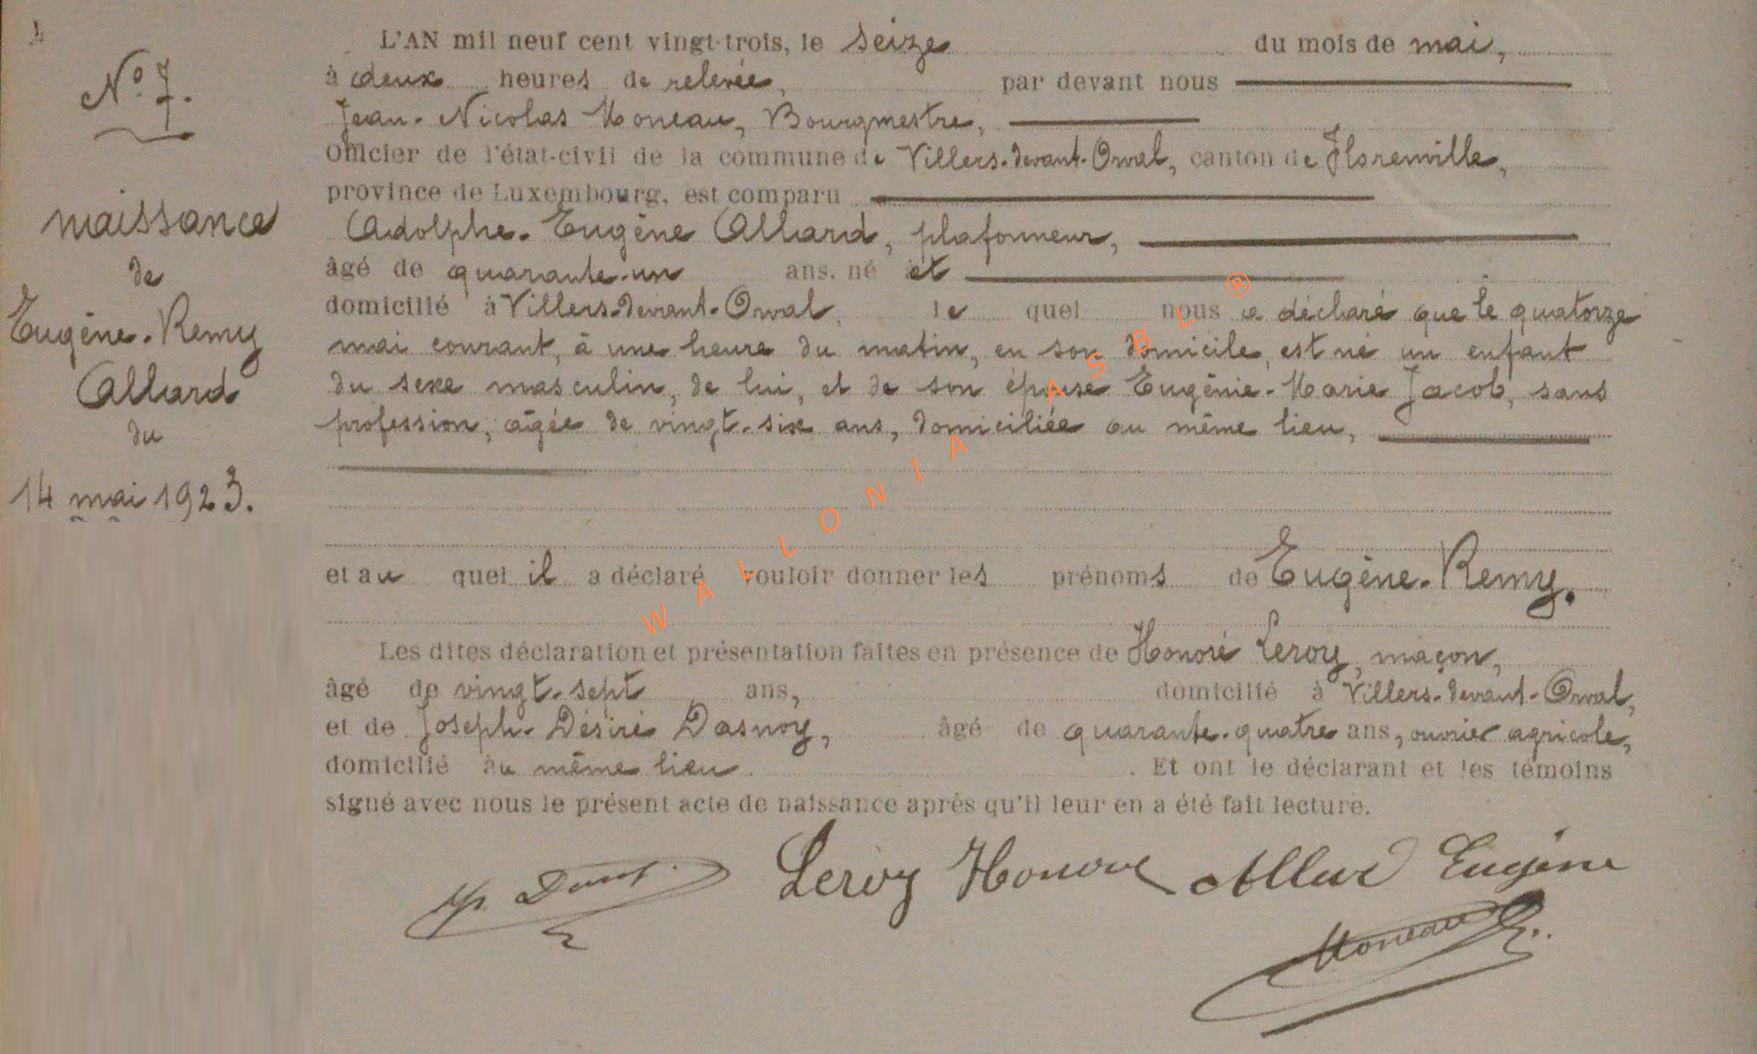 N° 7.
naissance
de
Eugène-Remy
Allard
du
14 mai 1923.
L'AN mil neuf cent vingt-trois, le seize du mois de mai,
à deux heures de relevée, par devant nous
Jean-Nicolas Moneau, Bourgmestre,
Officier de l'état-civil de la commune de Villers-devant-Orval, canton de Florenville,
province de Luxembourg, est comparu
Adolphe-Eugène Allard, plafonneur,
âgé de quarante-un ans, né et
domicilié à Villers-devant-Orval, le quel nous a déclaré que le quatorze
mai courant, à une heure du matin, en son domicile, est né un enfant
du sexe masculin, de lui, et de son épouse Eugénie-Marie Jacob, sans
profession, âgée de vingt-six ans, domiciliée au même lieu,
et au quel il a déclaré vouloir donner les prénoms de Eugène-Remy.
Les dites déclaration et présentation faites en présence de Honoré Leroy, maçon,
âgé de vingt-sept ans, domicilié à Villers-devant-Orval,
et de Joseph-Désiré Dasnoy, âgé de quarante-quatre ans, ouvrier agricole,
domicilié au même lieu. Et ont le déclarant et les témoins
signé avec nous le présent acte de naissance après qu'il leur en a été fait lecture.
Leroy Honoré Allard Eugène
Moneau
WALLONIA ASBL ®